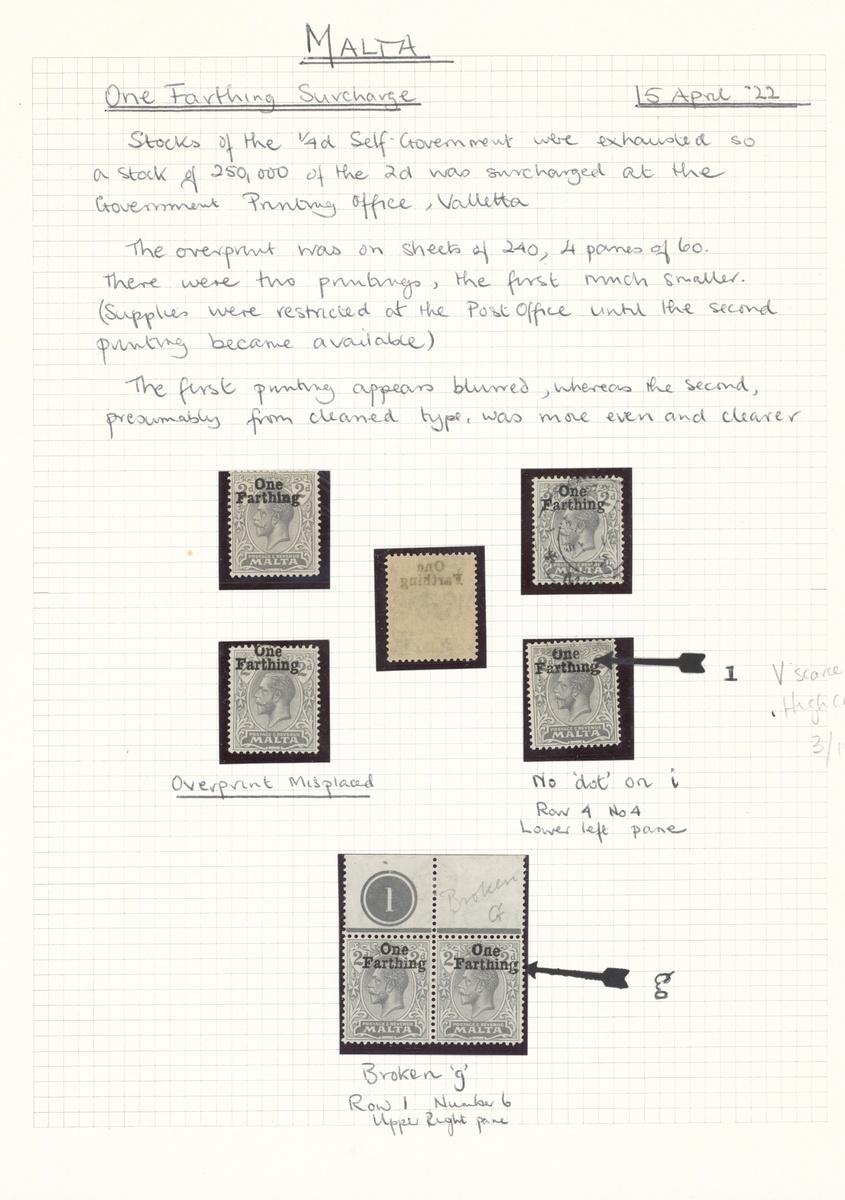 MALTA
One Farthing Surcharge
15 April '22
Stocks of the 1/4d Self-Government were exhausted so
a stock of 250,000 of the 2d was surcharged at the
Government Printing Office, Valletta
The overprint was on sheets of 240, 4 panes of 60.
There were two printings, the first much smaller.
(Supplies were restricted at the Post Office until the second
printing became available)
The first printing appears blurred, whereas the second,
presumably from cleaned type, was more even and clearer
One
Farthing
2d
POSTAGE & REVENUE
MALTA
One
Farthing
2d
MALTA
One
Farthing
One
Farthing
2d
POSTAGE & REVENUE
MALTA
One
Farthing
POSTAGE & REVENUE
MALTA
1
V scarce
High
3/
Overprint Misplaced
No 'dot' on i
Row 4 No 4
Lower left pane
1
Broken
G
One
Farthing
2d
POSTAGE & REVENUE
MALTA
One
Farthing
2d
POSTAGE & REVENUE
MALTA
g
Broken 'g'
Row 1 Number 6
Upper Right pane